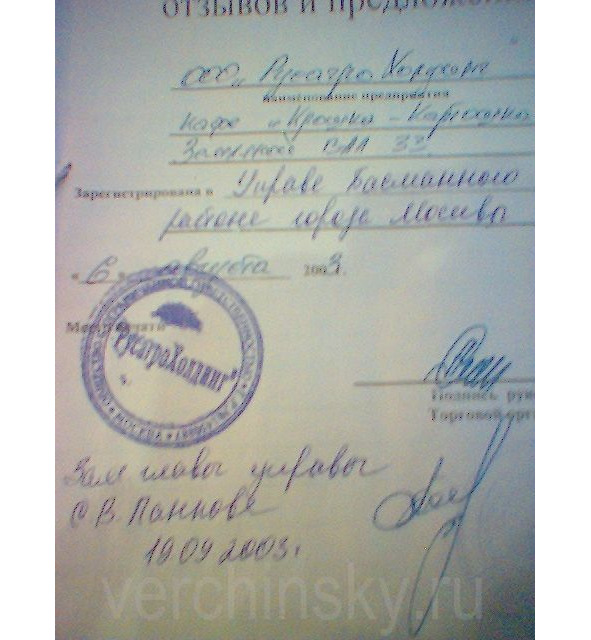 отзывов и предложений
ООО "Русагро Холдинг
наименование предприятия
кафе "Крошка - Картошка
Земляной вал 33
Зарегистрирована в Управе Басманного
районе города Москва
« 6 » августа 2003г.
Место печати
"РусагроХолдинг"
МОСКВА
Подпись
Торговой
Зам главы управы
С В Панкове
19 09 2003г
verchinsky.ru